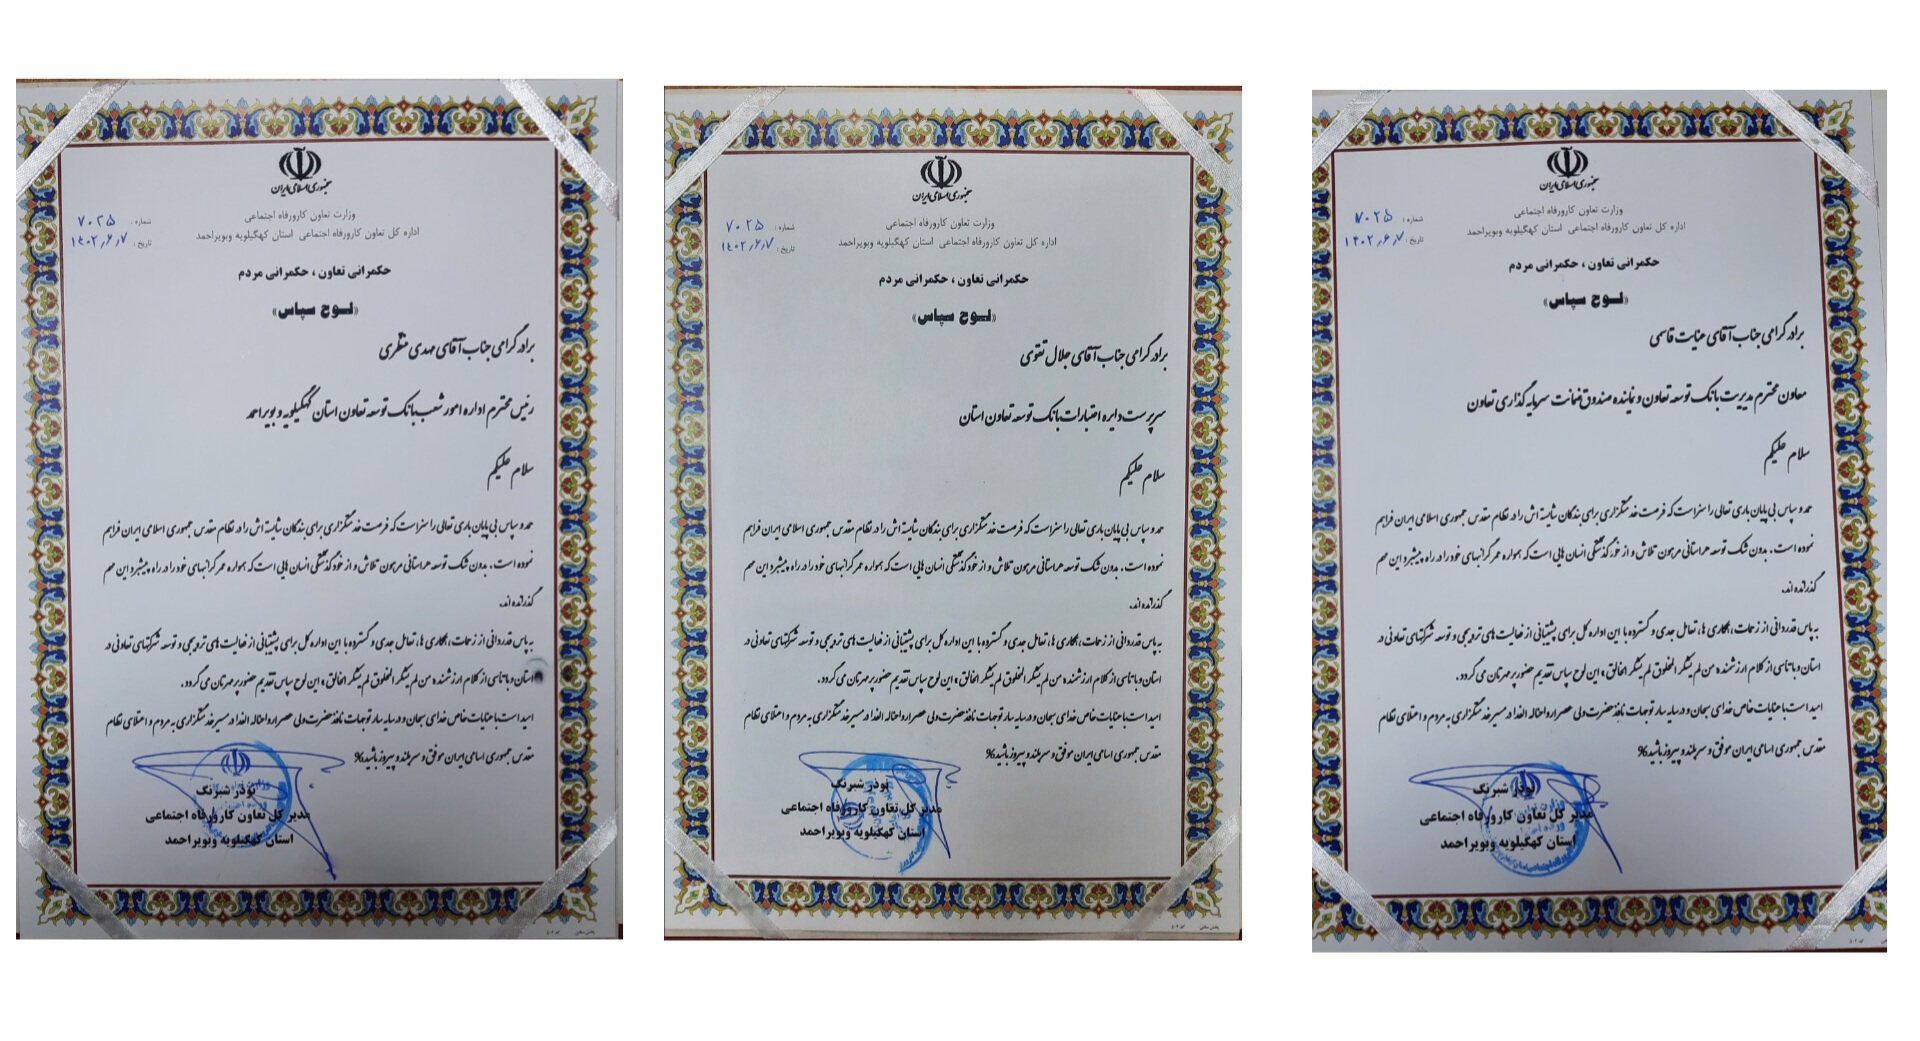 جمهوری اسلامی ایران
وزارت تعاون کارورفاه اجتماعی
شماره : ۷۰۲۵
اداره کل تعاون کارورفاه اجتماعی استان کهگیلویه وبویراحمد
تاریخ : ۱۴۰۲٫۶٫۷
حکمرانی تعاون ، حکمرانی مردم
«لـوح سپاس»
برادر گرامی جناب آقای مهدی منتظری
رئیس محترم اداره امور شعب بانک توسعه تعاون استان کهگیلویه و بویراحمد
سلام علیکم
حمد و سپاس بی پایان باری تعالی را سزاست که فرصت خدمتگزاری برای بندگان شایسته اش را در نظام مقدس جمهوری اسلامی ایران فراهم
نموده است . بدون شک توسعه هر استانی مرهون تلاش و از خود گذشتگی انسان هایی است که همواره عمر گرانبهای خود را در راه پیشبرد این مهم
گذرانده اند.
به پاس قدردانی از زحمات، همکاری ها، تعامل جدی و گسترده با این اداره کل برای پشتیبانی از فعالیت های ترویجی و توسعه شرکتهای تعاونی در
استان و با تاسی از کلام ارزشنده من لم یشکر المخلوق لم یشکر الخالق ، این لوح سپاس تقدیم حضور پر مهرتان می گردد.
امید است با عنایات خاص خدای سبحان و در سایه سار توجهات نافذه حضرت ولی عصر ارواحناله الفدا در مسیر خدمتگزاری به مردم و اعتلای نظام
مقدس جمهوری اسلامی ایران موفق و سربلند و پیروز باشید%
نوذر شبرنگ
مدیر کل تعاون کارورفاه اجتماعی
استان کهگیلویه وبویراحمد
جمهوری اسلامی ایران
وزارت تعاون کارورفاه اجتماعی
شماره : ۷۰۲۵
اداره کل تعاون کارورفاه اجتماعی استان کهگیلویه وبویراحمد
تاریخ : ۱۴۰۲٫۶٫۷
حکمرانی تعاون ، حکمرانی مردم
«لـوح سپاس»
برادر گرامی جناب آقای جلال تقوی
سرپرست دایره اعتبارات بانک توسعه تعاون استان
سلام علیکم
حمد و سپاس بی پایان باری تعالی را سزاست که فرصت خدمتگزاری برای بندگان شایسته اش را در نظام مقدس جمهوری اسلامی ایران فراهم
نموده است . بدون شک توسعه هر استانی مرهون تلاش و از خود گذشتگی انسان هایی است که همواره عمر گرانبهای خود را در راه پیشبرد این مهم
گذرانده اند.
به پاس قدردانی از زحمات، همکاری ها، تعامل جدی و گسترده با این اداره کل برای پشتیبانی از فعالیت های ترویجی و توسعه شرکتهای تعاونی در
استان و با تاسی از کلام ارزشنده من لم یشکر المخلوق لم یشکر الخالق ، این لوح سپاس تقدیم حضور پر مهرتان می گردد.
امید است با عنایات خاص خدای سبحان و در سایه سار توجهات نافذه حضرت ولی عصر ارواحناله الفدا در مسیر خدمتگزاری به مردم و اعتلای نظام
مقدس جمهوری اسلامی ایران موفق و سربلند و پیروز باشید%
نوذر شبرنگ
مدیر کل تعاون کارورفاه اجتماعی
استان کهگیلویه وبویراحمد
جمهوری اسلامی ایران
وزارت تعاون کارورفاه اجتماعی
شماره : ۷۰۲۵
اداره کل تعاون کارورفاه اجتماعی استان کهگیلویه وبویراحمد
تاریخ : ۱۴۰۲٫۶٫۷
حکمرانی تعاون ، حکمرانی مردم
«لـوح سپاس»
برادر گرامی جناب آقای عنایت قاسمی
معاون محترم مدیریت بانک توسعه تعاون و نماینده صندوق ضمانت سرمایه گذاری تعاون
سلام علیکم
حمد و سپاس بی پایان باری تعالی را سزاست که فرصت خدمتگزاری برای بندگان شایسته اش را در نظام مقدس جمهوری اسلامی ایران فراهم
نموده است . بدون شک توسعه هر استانی مرهون تلاش و از خود گذشتگی انسان هایی است که همواره عمر گرانبهای خود را در راه پیشبرد این مهم
گذرانده اند.
به پاس قدردانی از زحمات، همکاری ها، تعامل جدی و گسترده با این اداره کل برای پشتیبانی از فعالیت های ترویجی و توسعه شرکتهای تعاونی در
استان و با تاسی از کلام ارزشنده من لم یشکر المخلوق لم یشکر الخالق ، این لوح سپاس تقدیم حضور پر مهرتان می گردد.
امید است با عنایات خاص خدای سبحان و در سایه سار توجهات نافذه حضرت ولی عصر ارواحناله الفدا در مسیر خدمتگزاری به مردم و اعتلای نظام
مقدس جمهوری اسلامی ایران موفق و سربلند و پیروز باشید%
نوذر شبرنگ
مدیر کل تعاون کارورفاه اجتماعی
استان کهگیلویه وبویراحمد